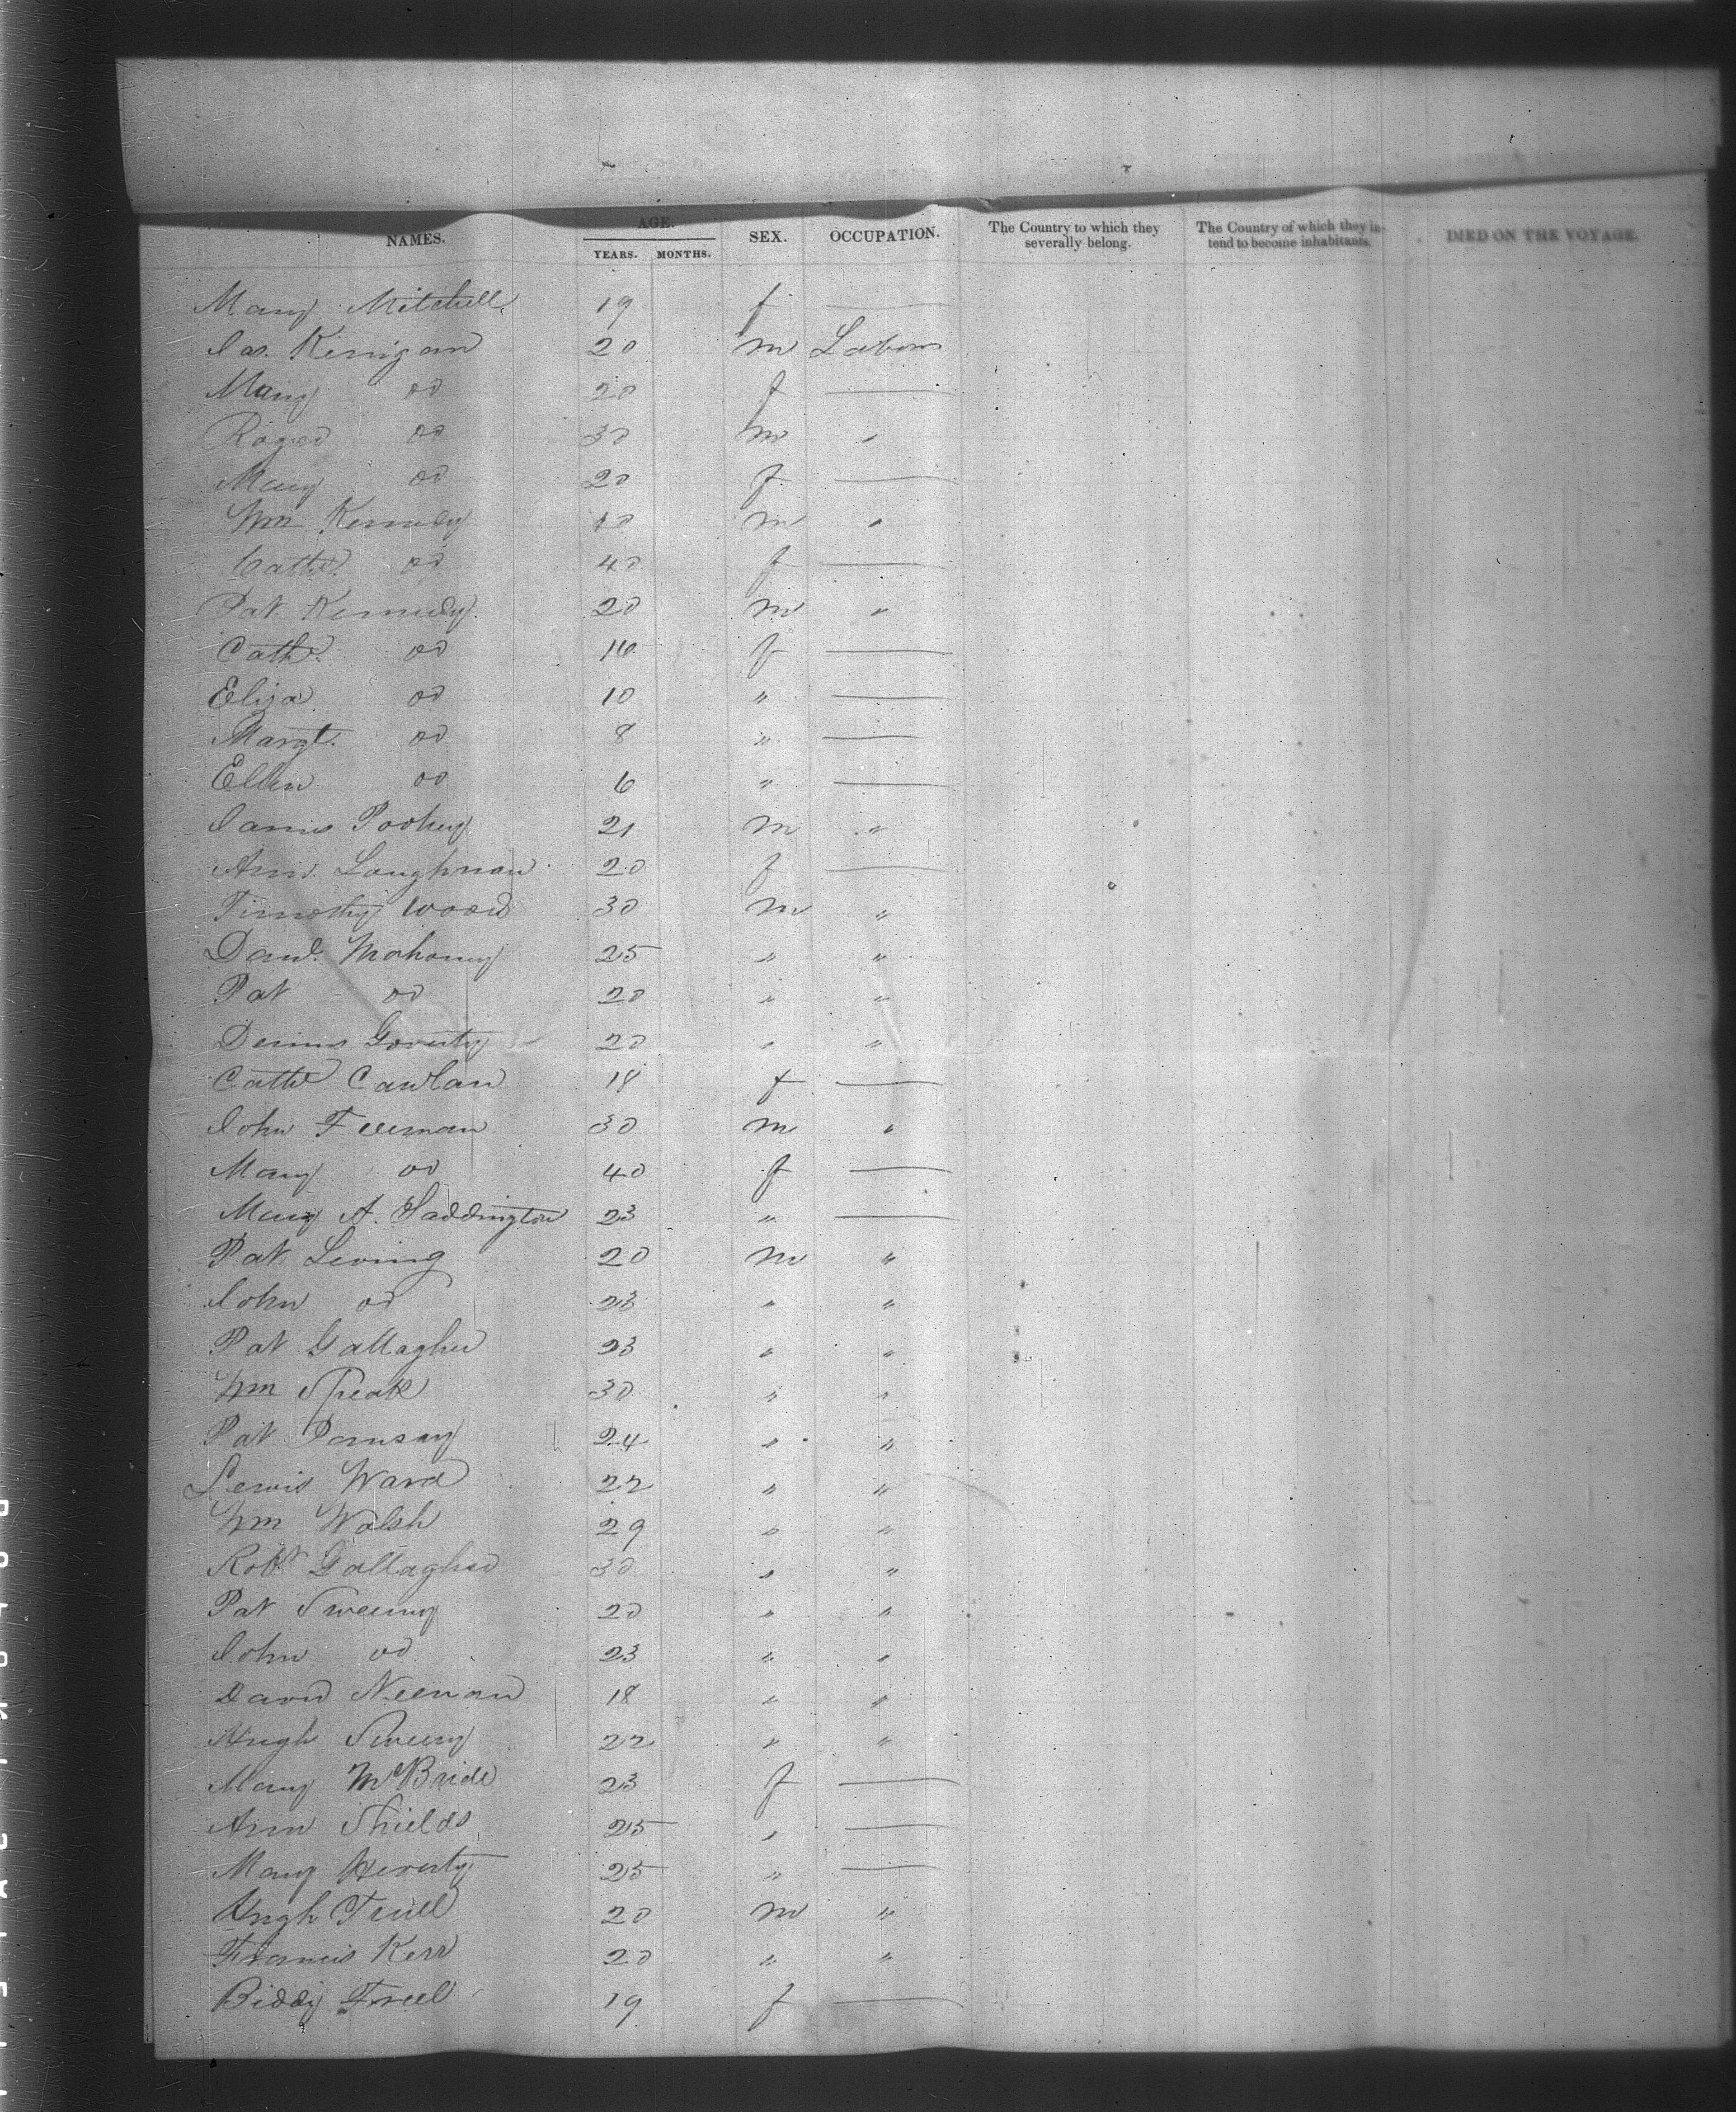 NAMES. AGE. YEARS. MONTHS. SEX. OCCUPATION. The Country to which they severally belong. The Country of which they intend to become inhabitants. DIED ON THE VOYAGE.
Mary Mitchell 19 f —
Jas. Kerrigan 20 m Labour
Mary do 20 f —
Roger do 30 m "
Mary do 20 f —
Wm Kennedy m "
Cathe. do 40 f —
Pat Kennedy 20 m "
Cathe. do f —
Eliza do 10 " —
Margt. do 8 " —
Ellen do 6 " —
James 21 m "
Ann Loughnan 20 f —
Timothy Wood 30 m "
Danl. Mahoney 25 " "
Pat do 20 " "
Dennis 20 " "
Cathe 18 f —
John Freeman 30 m "
Mary do 40 f —
Mary A. Saddington 23 " —
Pat 20 m "
John do 23 " "
Pat Gallagher 23 " "
Wm Speak 30 " "
Pat 24 " "
Lewis Ward 22 " "
Wm Walsh 29 " "
Robt Gallagher 30 " "
Pat Sweeny 20 " "
John do 23 " "
David 18 " "
Hugh Sweeny 22 " "
Mary McBride 23 f —
Ann Shields 25 " —
Mary 25 " —
Hugh Friell 20 m "
Francis Kerr 20 " "
Biddy Freel 19 f —